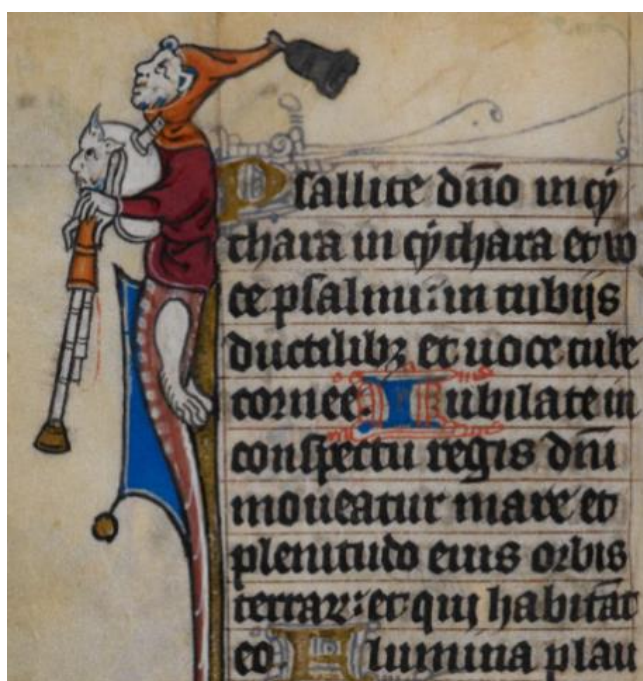 Psallite dño in cy
thara in cythara et vo
ce psalmi: in tubijs
ductilibꝫ et uoce tube
cornee. Iubilate in
conspectu regis dñi
moueatur mare et
plenitudo eius orbis
terraꝝ: et qui habitãt
eo Flumina plau